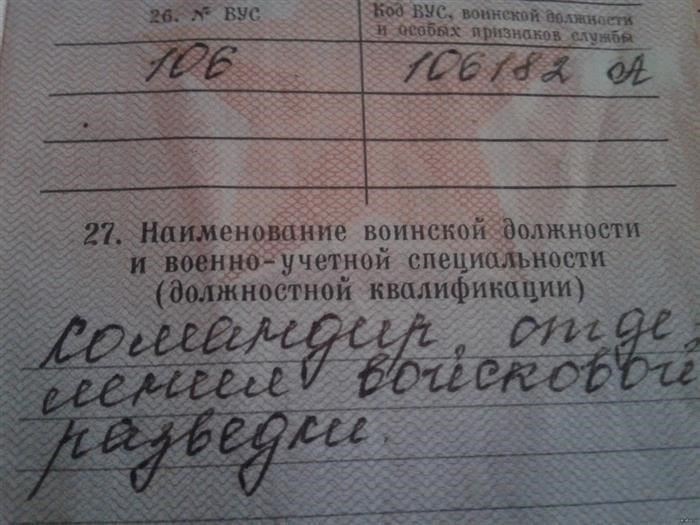 26. № ВУС
Код ВУС, воинской должности
и особых признаков службы
106
106182 А
27. Наименование воинской должности
и военно-учетной специальности
(должностной квалификации)
командир отде
ления войсковой
разведки.